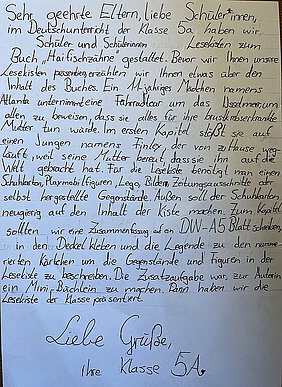 Sehr geehrte Eltern, liebe Schüler*innen,
im Deutschunterricht der Klasse 5a haben wir,
Schüler und Schülerinnen Lesekisten zum
Buch „Haifischzähne“ gestaltet. Bevor wir Ihnen unsere
Lesekisten erzählen wir Ihnen etwas über den
Inhalt des Buches. Ein 11-jähriges Mädchen namens
Atlanta unternimmt eine Fahrradtour um das IJsselmeer, um
allen zu beweisen, dass sie alles für ihre brustkrebserkrankte
Mutter tun würde. Im ersten Kapitel stößt sie auf
einen Jungen namens Finley, der von zuhause weg-
läuft, weil seine Mutter bereut, dass sie ihn auf die
Welt gebracht hat. Für die Lesekiste benötigt man einen
Schuhkarton, Playmobilfiguren, Lego, Bilder, Zeitungsausschnitte oder
selbst hergestellte Gegenstände. Außen soll der Schuhkarton
neugierig auf den Inhalt der Kiste machen. Zum Kapitel
sollten wir eine Zusammenfassung auf ein DIN-A5 Blatt schreiben,
in den Deckel kleben und die Legende zu den numme-
rierten Kärtchen um die Gegenstände und Figuren in der
Lesekiste zu beschreiben. Die Zusatzaufgabe war, zur Autorin
ein Mini-Büchlein zu machen. Dann haben wir die
Lesekiste der Klasse präsentiert.
Liebe Grüße,
Ihre Klasse 5A.